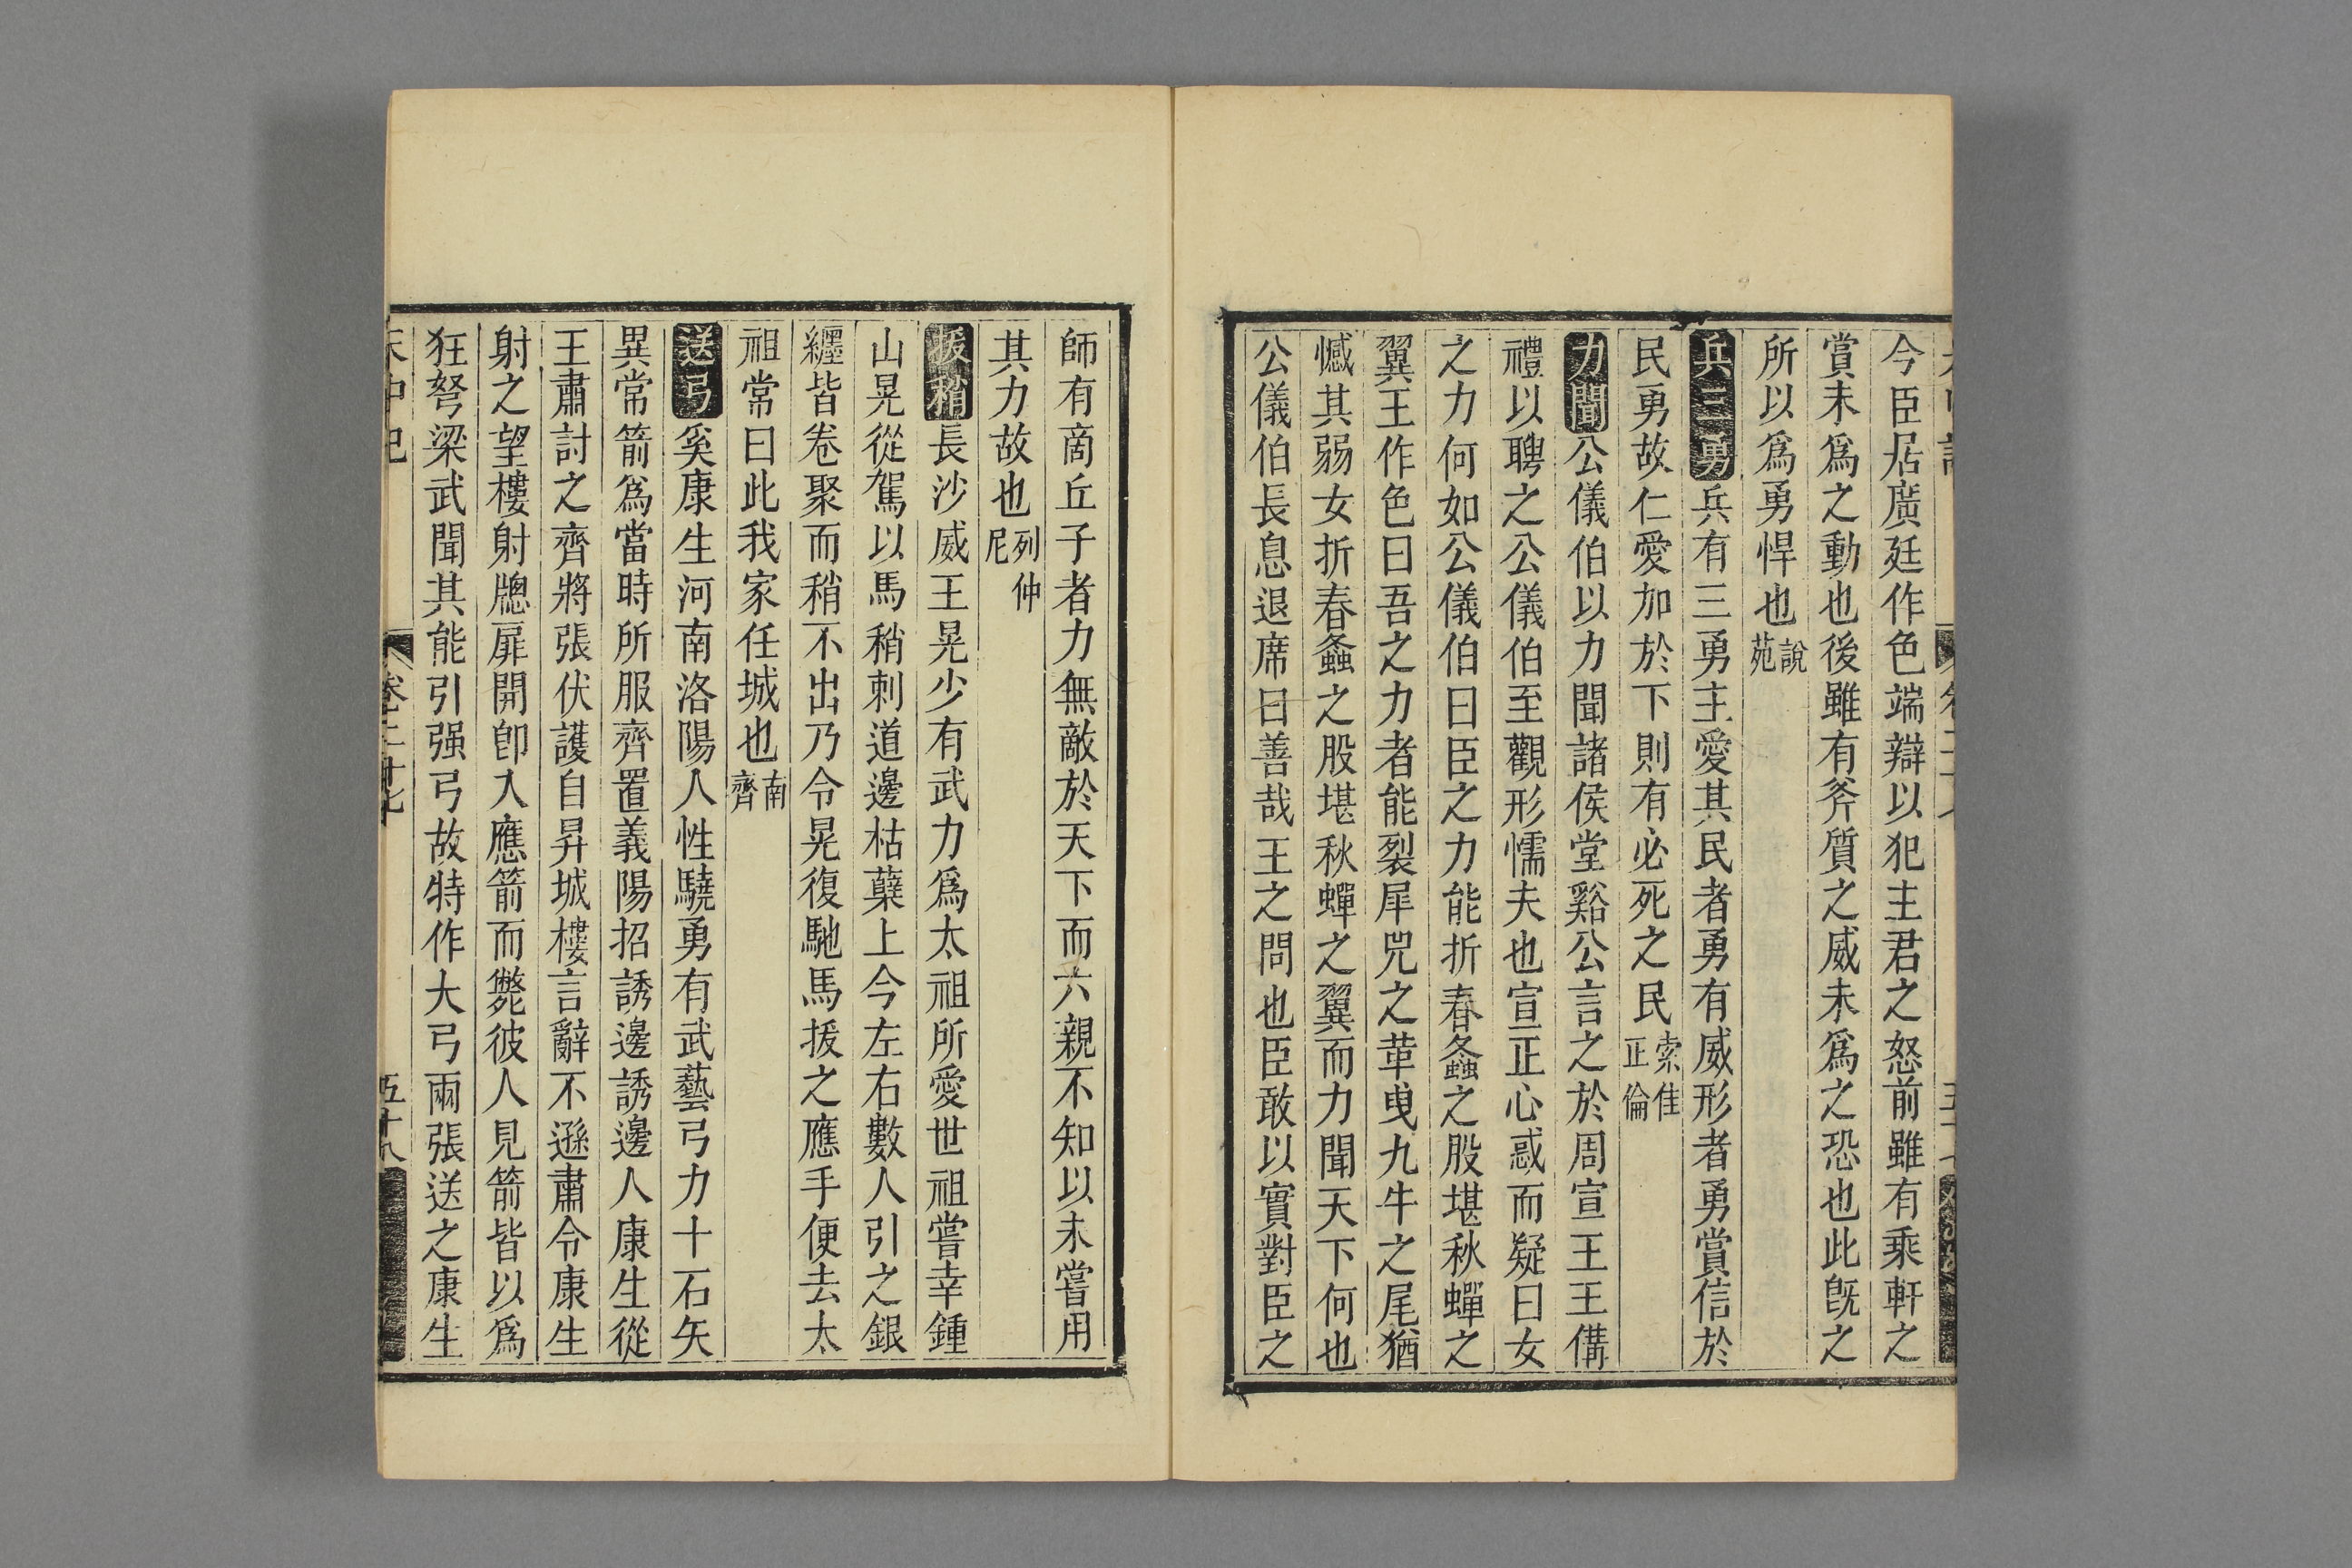 今臣居廣廷作色端辯以犯主君之怒前雖有乘軒之
賞未爲之動也後雖有斧質之威未爲之恐也此旣之
所以爲勇悍也說苑
兵三勇兵有三勇主愛其民者勇有威形者勇賞信於
民勇故仁愛加於下則有必死之民索隹正倫
力聞公儀伯以力聞諸侯堂谿公言之於周宣王王備
禮以聘之公儀伯至觀形懦夫也宣正心惑而疑曰女
之力何如公儀伯曰臣之力能折春螽之股堪秋蟬之
翼王作色曰吾之力者能裂犀兕之革曳九牛之尾猶
憾其弱女折春螽之股堪秋蟬之翼而力聞天下何也
公儀伯長息退席曰善哉王之問也臣敢以實對臣之
師有商丘子者力無敵於天下而六親不知以未嘗用
其力故也列仲尼
拔矟長沙威王晃少有武力爲太祖所愛世祖嘗幸鍾
山晃從駕以馬稍刺道邊枯蘗上今左右數人引之銀
纏皆卷聚而稍不出乃令晃復馳馬拔之應手便去太
祖常曰此我家任城也南齊
送弓奚康生河南洛陽人性驍勇有武藝弓力十石矢
異常箭爲當時所服齊置義陽招誘邊誘邊人康生從
王肅討之齊將張伏護自昇城樓言辭不遜肅令康生
射之望樓射牕扉開卽入應箭而斃彼人見箭皆以爲
狂弩梁武聞其能引强弓故特作大弓兩張送之康生
卷二十七
五十八